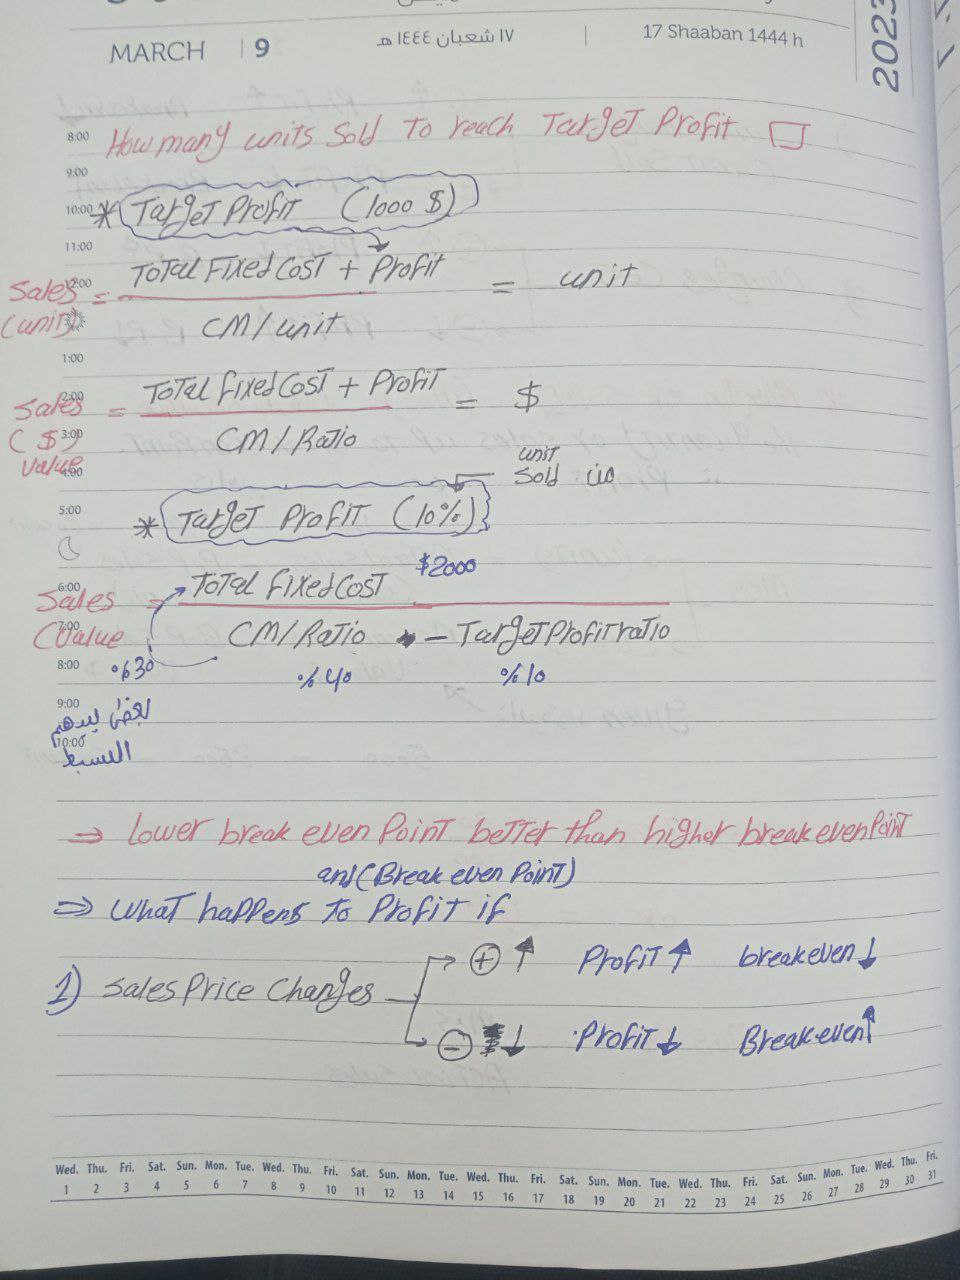 MARCH | 9
١٧ شعبان ١٤٤٤ هـ
| 17 Shaaban 1444 h
2023
8:00 How many units Sold To reach Target Profit
9:00
10:00 * Target Profit (1000 $)
11:00
Total Fixed Cost + Profit
Sales (unit) = = unit
CM/unit
1:00
Total fixed Cost + Profit
Sales ($) value = = $
2:00
3:00 CM/Ratio
4:00
unit
Sold من
5:00 * Target Profit (10%)
$2000
6:00 Total fixed Cost
Sales (Value =
7:00 CM/Ratio - Target Profit ratio
8:00 %30 %40 %10
9:00
10:00
البسط
⇒ lower break even Point better than higher break even Point
and (Break even Point)
⇒ What happens to Profit if
+ ↑ Profit ↑ breakeven ↓
1) Sales Price Changes
- ↓ Profit ↓ Break-even ↑
Wed. Thu. Fri. Sat. Sun. Mon. Tue. Wed. Thu. Fri. Sat. Sun. Mon. Tue. Wed. Thu. Fri. Sat. Sun. Mon. Tue. Wed. Thu. Fri. Sat. Sun. Mon. Tue. Wed. Thu. Fri.
1 2 3 4 5 6 7 8 9 10 11 12 13 14 15 16 17 18 19 20 21 22 23 24 25 26 27 28 29 30 31